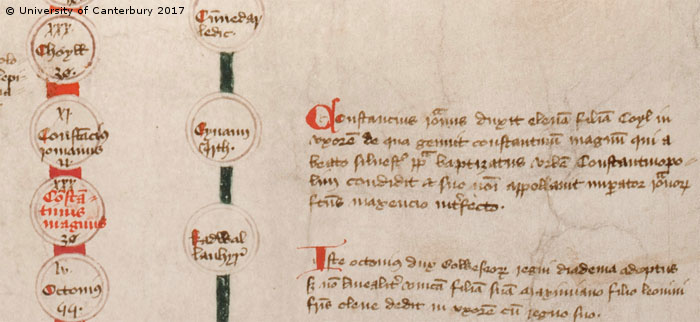 © University of Canterbury 2017
XXX
Choyll
30
XI
Constancius
romanus
11
XXX
Constan-
tinus
magnus
30
lv
Octonius
Cunedag
ledic
Eynann
Kadwal
lauhyr
Constancius romanus duxit elenam filiam Coyl in
uxorem de qua genuit constantinum magnum qui a
beato silvestro papa baptizatus urbem Constantinopo-
lim condidit et suo nomine appellavit imperator romanorum
factus maxencio interfecto.
Iste octonius dux regni diadema adeptus
non linealiter unicam filiam suam maximiano filio leonini
fratris elene dedit in uxorem cum regno suo.